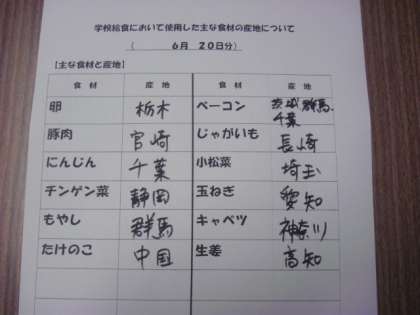 学校給食において使用した主な食材の産地について
( 6月 20日分)
【主な食材と産地】
食材 産地 食材 産地
卵 栃木 ベーコン 茨城 群馬、千葉
豚肉 宮崎 じゃがいも 長崎
にんじん 千葉 小松菜 埼玉
チンゲン菜 静岡 玉ねぎ 愛知
もやし 群馬 キャベツ 神奈川
たけのこ 中国 生姜 高知